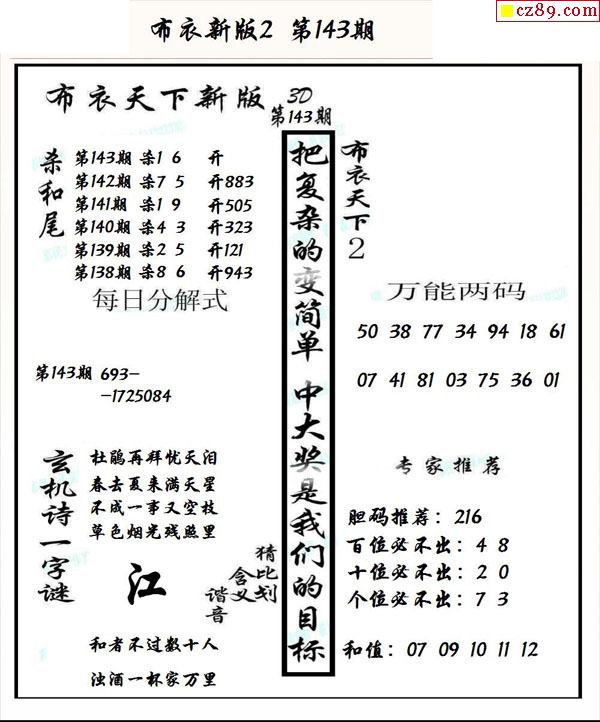 cz89.com
布衣新版2 第143期
布衣天下新版 3D
第143期
杀和尾
第143期 杀1 6 开
第142期 杀7 5 开883
第141期 杀1 9 开505
第140期 杀4 3 开323
第139期 杀2 5 开121
第138期 杀8 6 开943
每日分解式
第143期 693-
-1725084
玄机诗一字谜
杜鹃再拜忧天泪
春去夏来满天星
不成一事又空枝
草色烟光残照里
江
猜比划
含义
谐音
和者不过数十人
浊酒一杯家万里
把复杂的变简单 中大奖是我们的目标
布衣天下2
万能两码
50 38 77 34 94 18 61
07 41 81 03 75 36 01
专家推荐
胆码推荐：216
百位必不出：4 8
十位必不出：2 0
个位必不出：7 3
和值：07 09 10 11 12